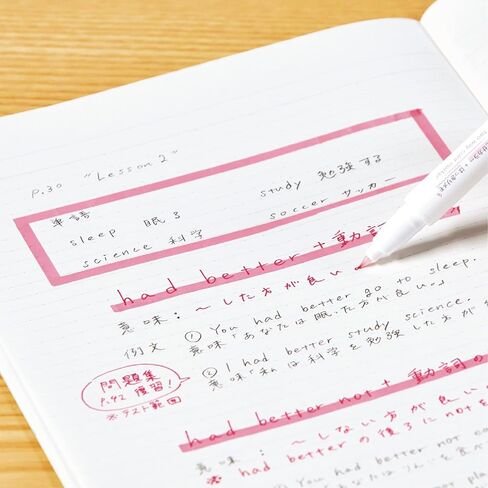 P.30 "Lesson 2"
単語
sleep 眠る study 勉強する
science 科学 soccer サッカー
had better + 動詞
意味：〜した方が良い
例文 ① You had better go to sleep.
意味「あなたは眠った方が良い。」
② I had better study science.
意味「私は科学を勉強した方が
問題集
P.42 復習！
※テスト範囲
had better not + 動詞の
意味：〜しない方が良い
※ had better の後ろに notを
① You had better not